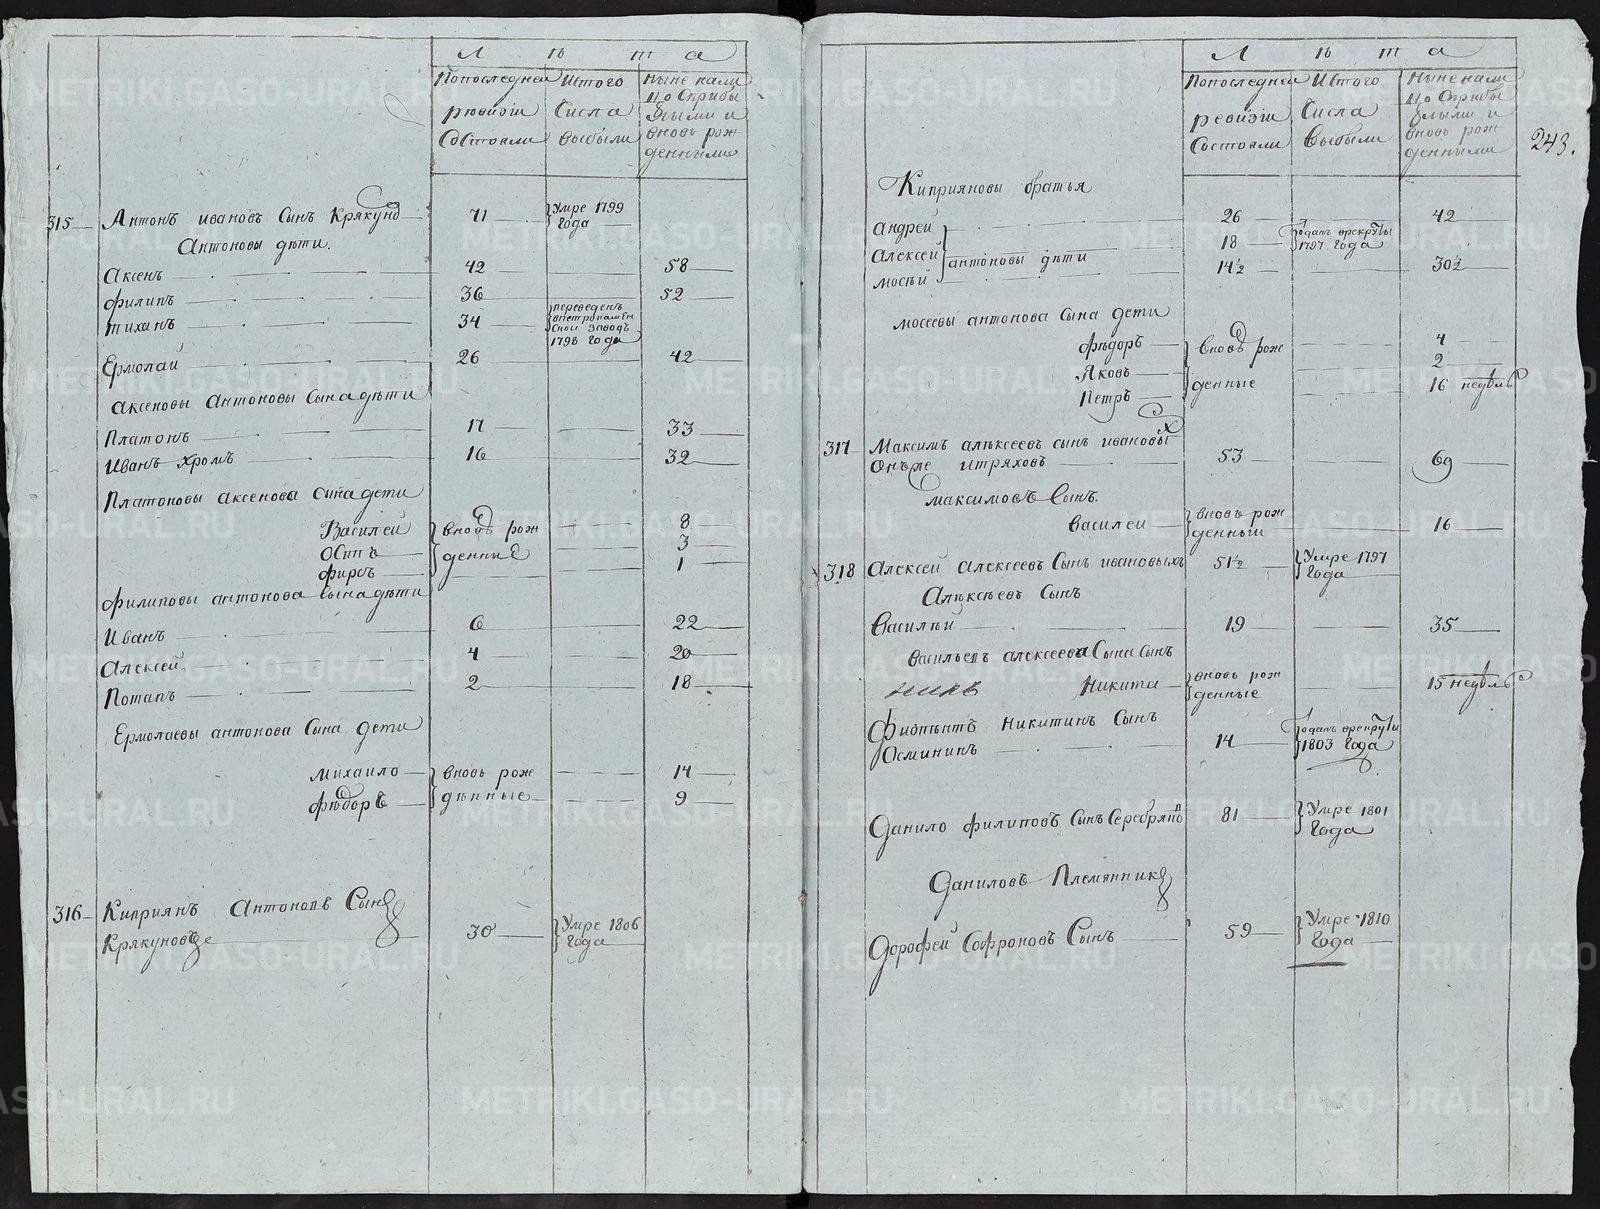 Л ѣ т а
Попоследней
рѣвизіи
Состояли
Изтого
Сисла
выбыли
Ныне нали
що Сприбы
лыми и
вновь рож
денными
315 Антонъ ивановъ Сынъ Крякунов 71 Умре 1799 года
Антоновы дѣти.
Аксенъ 42 58
Филипъ 36 52
тиханъ 34 переведенъ 1798 года
Ермолай 26 42
аксеновы Антоновы Сына дѣти
Платонъ 17 33
Иванъ хромъ 16 32
Платоновы аксенова сына дети
Василей вновь рож 8
Осипъ денние 3
фирсъ 1
филиповы антонова Сына дѣти
Иванъ 6 22
Алексей 4 20
Потапъ 2 18
Ермолаевы антонова Сына дети
михаило вновь рож 14
Фѣдоръ дѣнные 9
316 Киприянъ Антоновъ Сынъ
Крякуновъ же 30 Умре 1806 года
Л ѣ т а
Попоследней
ревизіи
Состояли
Изтого
Сисла
выбыли
Ныне нали
що Сприбы
лыми и
вновь рож
денными
243.
Киприяновы братья
андрей 26 42
алексей 18 Одатъ врекруты 1797 года
антоновы дѣти
мосѣй 14½ 30½
мосеевы антонова Сына дети
фѣдоръ вновь рож 4
Яковъ 2
Петръ денные 16 недѣль
317 Максимъ алѣксеевъ сынъ ивановых
Онъже итряховъ 53 69
максимовъ Сынъ.
василеи вновь рож денныи 16
318 Алексей алексеевъ Сынъ ивановыхъ 51½ Умре 1797 года
Алѣксѣевъ Сынъ
Василѣй 19 35
Васильевъ алексеева Сына Сынъ
Никита вновь рож денные 15 недѣль
никитинъ Сынъ
Осминин 14 Одатъ врекруты 1803 года
Данило филиповъ Сынъ Серебряп 81 Умре 1801 года
Даниловъ Племянник
Дорофей Софроновъ Сынъ 59 Умре 1810 года
METRIKI.GASO-URAL.RU